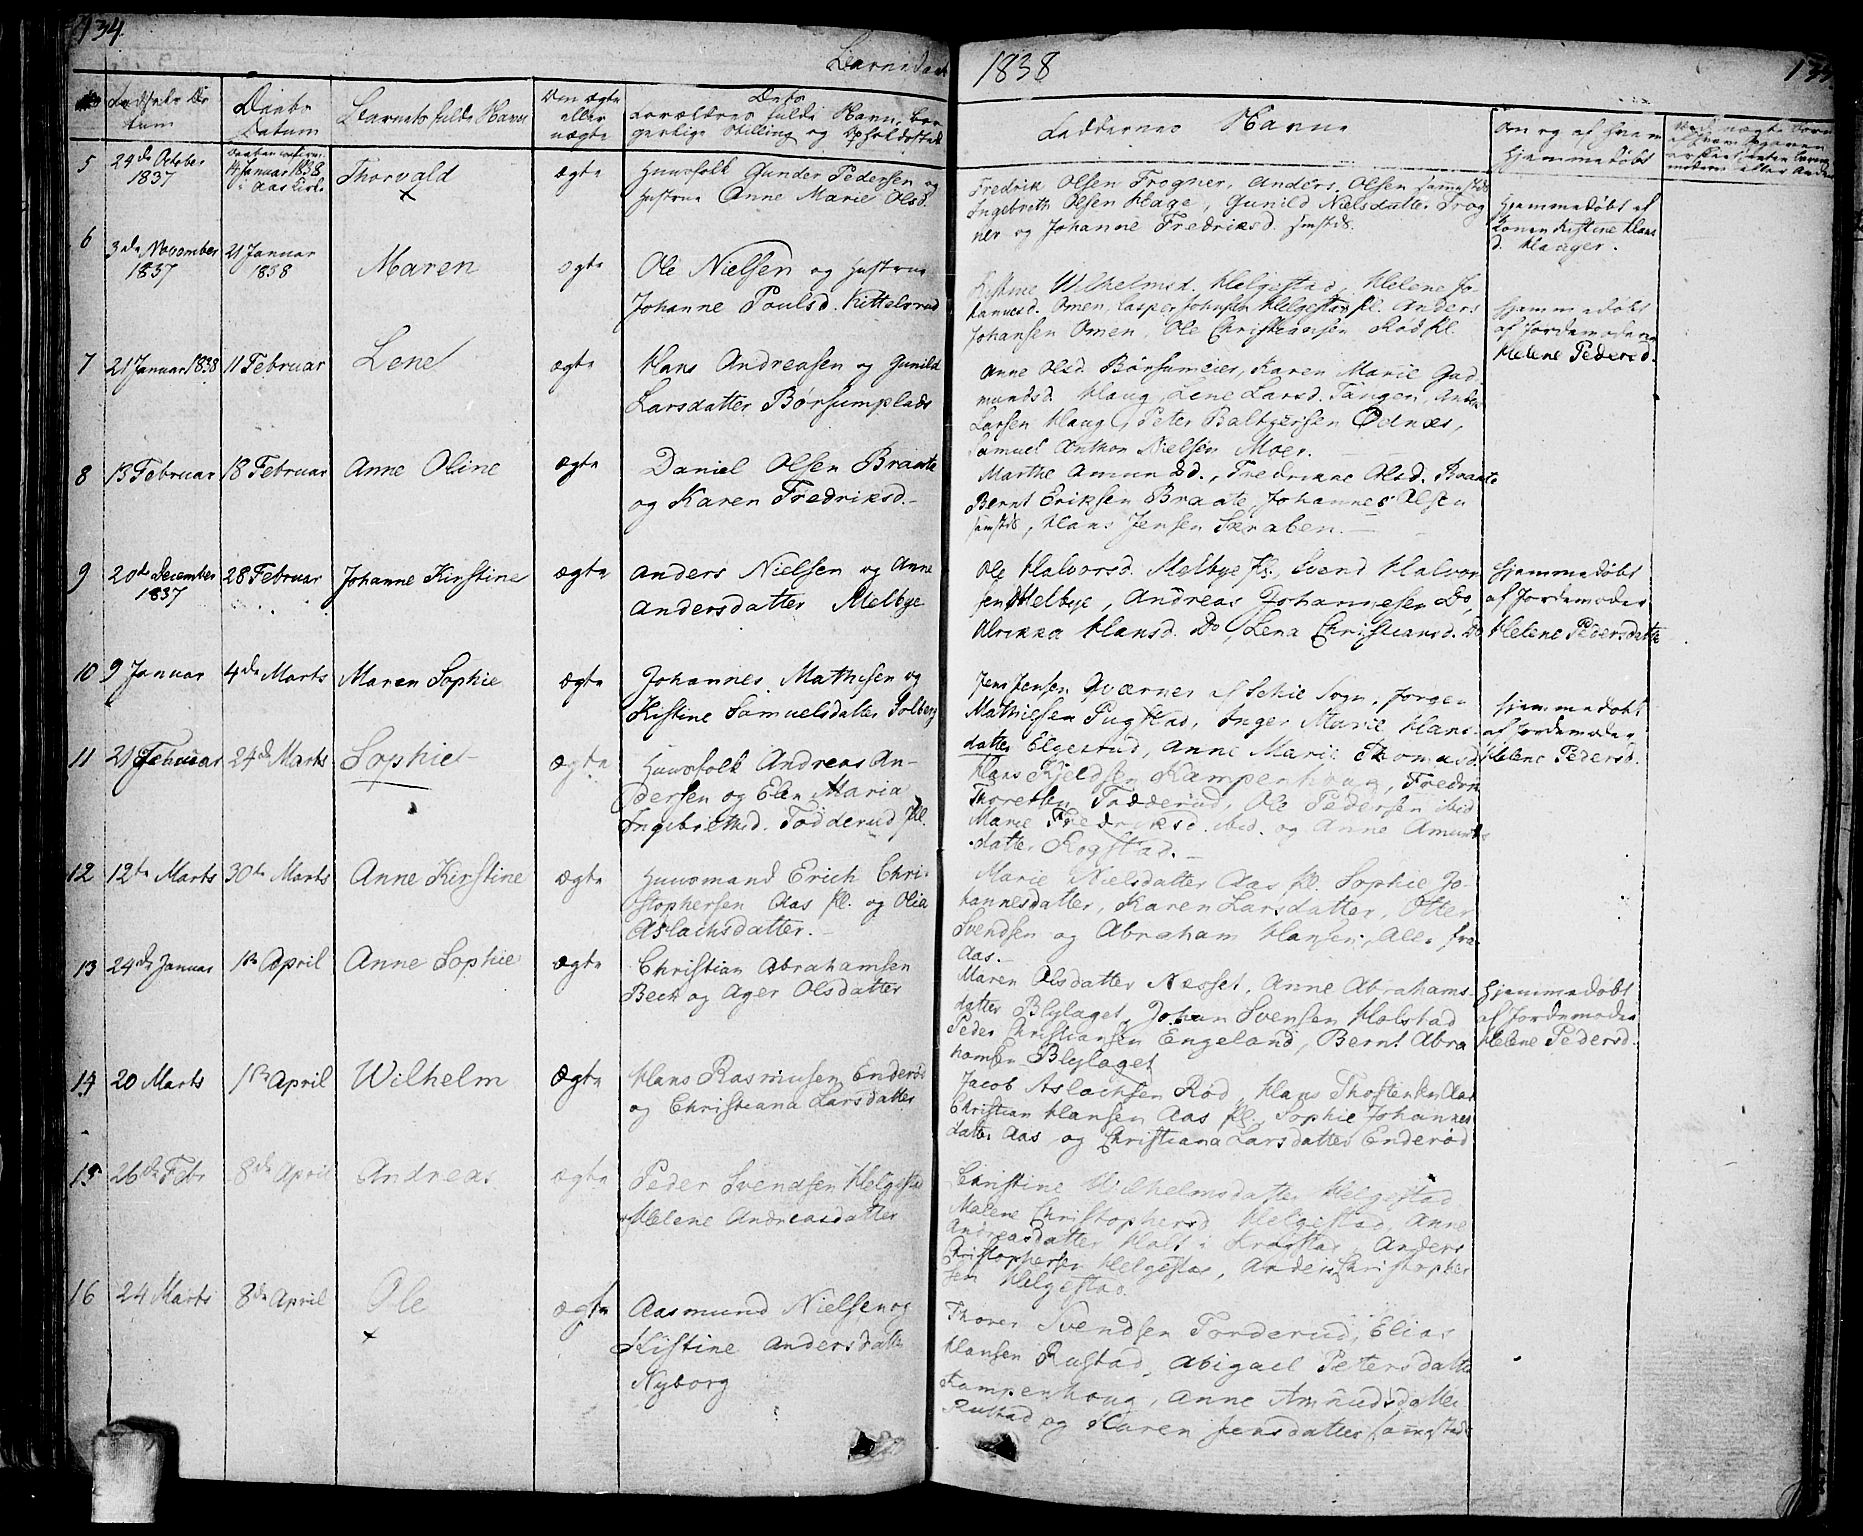 134.
Barnedaab
1838
Fødsels Da
tum
Daabs
Datum
Barnets fulde Navn
Om ægte
eller
uægte
Dets
Forældres fulde Navn, bor
gerlige Stilling og Opholdssted
Faddernes Navne
Om og af hvem
hjemmedøbt
5
24de October
1837
14 Januar 1838
i Aas Kirke
Thorvald
ægte
Huusfolk Gunder Pedersen og
Hustrue Anne Marie Olsd.
Fredrik Olsen Frogner, Anders Olsen sammesteds
Ingebreth Olsen Hage, Gunild Nielsdatter Frog
ner og Johanne Fredriksd. smsteds.
Hjemmedøbt af
Konen Kistine Hans
d. Haager.
6
3de November
1837
21 Januar
1838
Maren
ægte
Ole Nielsen og Hustrue
Johanne Poulsd. Kittelsrud
Kistine Wilhelmsd. Helgestad, Helene Jo
hannesd. Omen, Casper Johnsen Helgestad Pl. Anders
Johansen Omen, Ole Christiansen Rød Pl.
Hjemmedøbt
af Jordemoderen
Helene Pedersd.
7
21 Januar 1838
11 Februar
Lene
ægte
Hans Andreasen og Gunild
Larsdatter Børsumplads
Anne Olsd. Børsumeier, Karen Marie Gud
mundsd. Haug, Lene Larsd. Tangen, Anders
Larsen Haug, Peter Baltzersen Ødnæs,
Samuel Anthon Nielsen Moer.
8
13 Februar
18 Februar
Anne Oline
ægte
Daniel Olsen Braate
og Karen Fredriksd.
Marthe Amundsd., Fredrikke Olsd. Braate
Bernt Eriksen Braate, Johannes Olsen
smsteds, Hans Jensen Skraben.
9
20de December
1837
28 Februar
Johanne Kirstine
ægte
Anders Nielsen og Anne
Andersdatter Melbye
Ole Halvorsd. Melbye Pl., Svend Halvor
sen Melbye, Andreas Johannesen Do,
Alrikka Hansd. Do, Lena Christiansd. Do
Hjemmedøbt
af Jordemoder
Helene Pedersdatter
10
9 Januar
4de Marts
Maren Sophie
ægte
Johannes Mathisen og
Kistine Samuelsdatter Solberg
Jens Jensen Qværner af Schie Sogn, Jørgen
Mathiesen Pugstad, Inger Marie Hans
datter Elgestad, Anne Marie Thomasd.
Hjemmedøbt
af Jordemoder
Helene Pedersd.
11
21 Februar
24de Marts
Sophie
ægte
Huusfolk Andreas An-
dersen og Elen Maria
Ingebrethsd. Tødderud Pl.
Hans Kjeldsen Kampenhaug, Fredrik
Thoresen Tødderud, Ole Pedersen ibid
Marie Fredriksd. ibid. og Anne Amunds
datter Rogstad.
12
12te Marts
30te Marts
Anne Kirstine
ægte
Huusmand Erich Chri-
stophersen Aas Pl. og Olia
Aslachsdatter.
Marie Nielsdatter Aas Pl. Sophie Jo-
hannesdatter, Karen Larsdatter, Otter
Svendsen og Abraham Hansen, Alle fra
Aas.
13
24de Januar
1ste April
Anne Sophie
ægte
Christian Abrahamsen
Beck og Ager Olsdatter
Maren Olsdatter Aasset, Anne Abrahams
datter Blylaget, Johan Svensen Holstad
Peder Christiansen Engeland, Bernt Abra
hamsen Blylaget
Hjemmedøbt
af Jordemoder
Helene Pedersd.
14
20 Marts
1ste April
Wilhelm
Ægte
Hans Rasmusen Enderød
og Christiana Larsdatter
Jacob Aslachsen Rød, Hans Thostensen Aas
Christian Hansen Aas Pl., Sophie Johannes
datter Aas og Christiana Larsdatter Enderød
15
26de Febr
8de April
Andreas
ægte
Peder Svendsen Helgestad
Helene Andreasdatter
Christine Wilhelmsdatter Helgestad
Malene Christophersd. Helgestad, Anne
Andreasdatter Holt i Kragstad, Anders
Christophersen Helgestad, Anders Christopher
sen Helgestad.
16
24 Marts
8de April
Ole
ægte
Aasmund Nielsen og
Kistine Andersdatter
Nyborg
Thorer Svendsen Torderud, Elias
Hansen Rustad, Abigael Petersdatter
Kampenhaug, Anne Amundsdatter
Rustad og Karen Jensdatter sammesteds